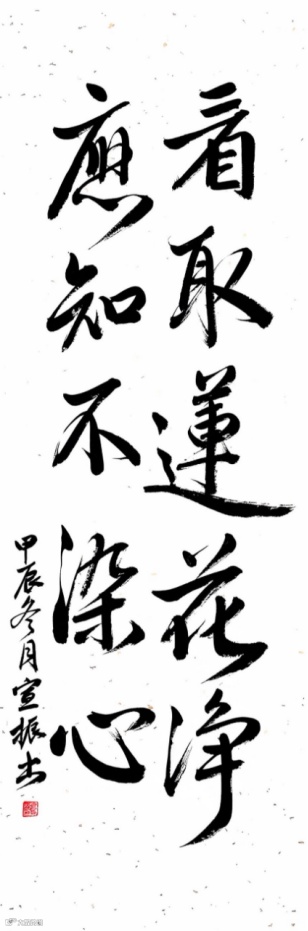 看取蓮花净
應知不染心
甲辰冬月宣振书